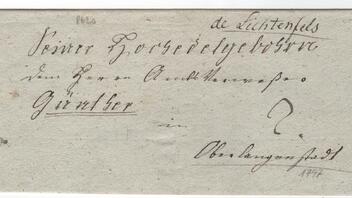 de Lichtenfels
Seiner Hochedelgebohrn
dem Herrn Amtsverweser
Günther
in
Oberlangenstadt